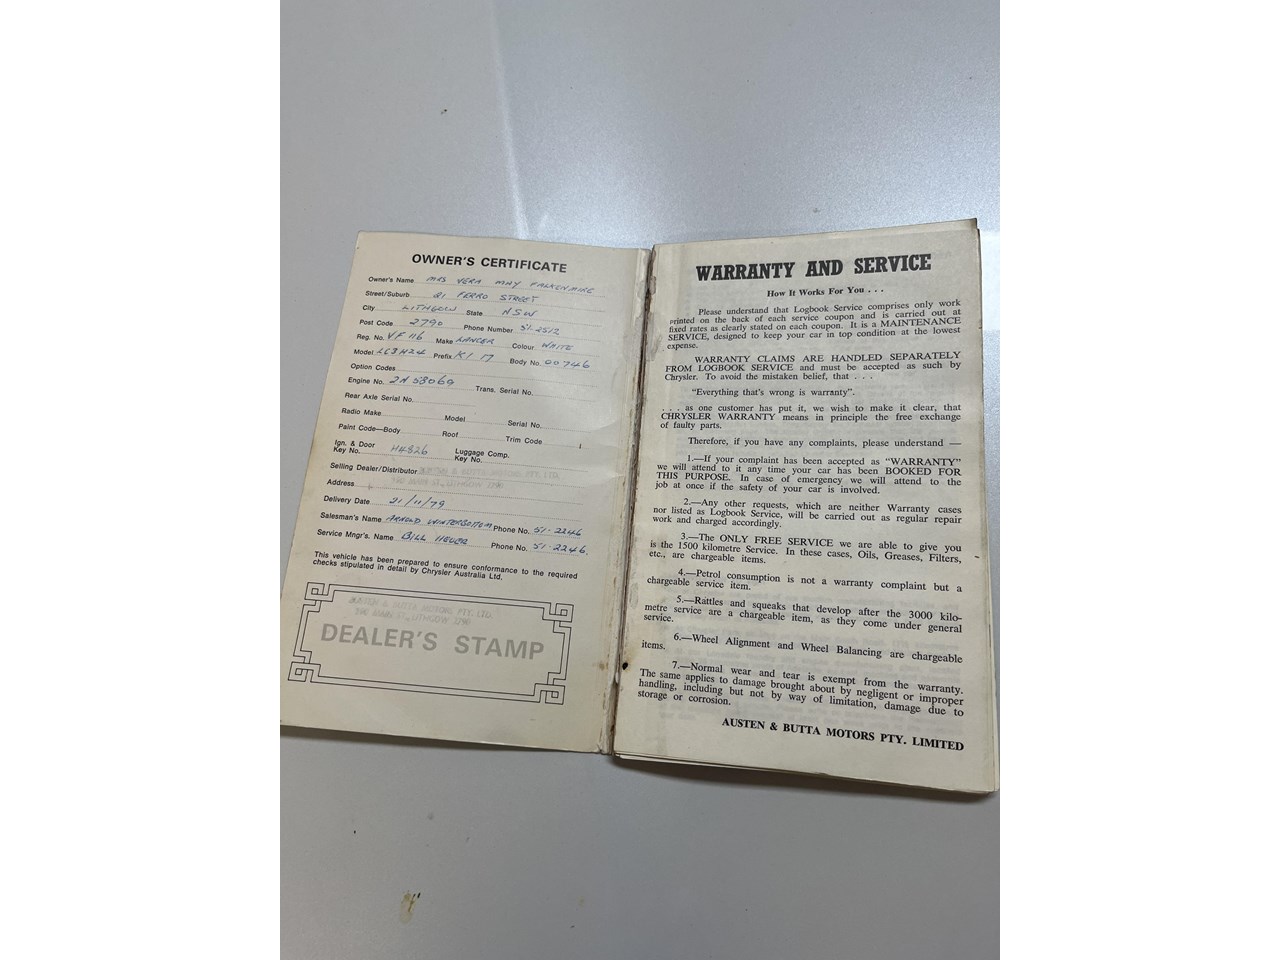 OWNER'S CERTIFICATE
Owner's Name MRS VERA MAY FALKENMIRE
Street/Suburb 21 FERRO STREET
City LITHGOW State NSW
Post Code 2790 Phone Number 51-2512
Reg. No. VF 116 Make LANCER Colour WHITE
Model LC3H24 Prefix K1 17 Body No. 00746
Option Codes
Engine No. 2N 58069 Trans. Serial No.
Rear Axle Serial No.
Radio Make Model Serial No.
Paint Code—Body Roof Trim Code
Ign. & Door Key No. H4826 Luggage Comp. Key No.
Selling Dealer/Distributor AUSTEN & BUTTA MOTORS PTY. LTD.
Address MAIN ST., LITHGOW 2790
Delivery Date 21/11/79
Salesman's Name ARNOLD WINTERBOTTOM Phone No. 51-2246
Service Mngr's. Name BILL Phone No. 51-2246.
This vehicle has been prepared to ensure conformance to the required
checks stipulated in detail by Chrysler Australia Ltd.
AUSTEN & BUTTA MOTORS PTY. LTD.
MAIN ST., LITHGOW 2790
DEALER'S STAMP
WARRANTY AND SERVICE
How It Works For You . . .
Please understand that Logbook Service comprises only work
printed on the back of each service coupon and is carried out at
fixed rates as clearly stated on each coupon. It is a MAINTENANCE
SERVICE, designed to keep your car in top condition at the lowest
expense.
WARRANTY CLAIMS ARE HANDLED SEPARATELY
FROM LOGBOOK SERVICE and must be accepted as such by
Chrysler. To avoid the mistaken belief, that . . .
"Everything that's wrong is warranty".
. . . as one customer has put it, we wish to make it clear, that
CHRYSLER WARRANTY means in principle the free exchange
of faulty parts.
Therefore, if you have any complaints, please understand —
1.—If your complaint has been accepted as "WARRANTY"
we will attend to it any time your car has been BOOKED FOR
THIS PURPOSE. In case of emergency we will attend to the
job at once if the safety of your car is involved.
2.—Any other requests, which are neither Warranty cases
nor listed as Logbook Service, will be carried out as regular repair
work and charged accordingly.
3.—The ONLY FREE SERVICE we are able to give you
is the 1500 kilometre Service. In these cases, Oils, Greases, Filters,
etc., are chargeable items.
4.—Petrol consumption is not a warranty complaint but a
chargeable service item.
5.—Rattles and squeaks that develop after the 3000 kilo-
metre service are a chargeable item, as they come under general
service.
6.—Wheel Alignment and Wheel Balancing are chargeable
items.
7.—Normal wear and tear is exempt from the warranty.
The same applies to damage brought about by negligent or improper
handling, including but not by way of limitation, damage due to
storage or corrosion.
AUSTEN & BUTTA MOTORS PTY. LIMITED